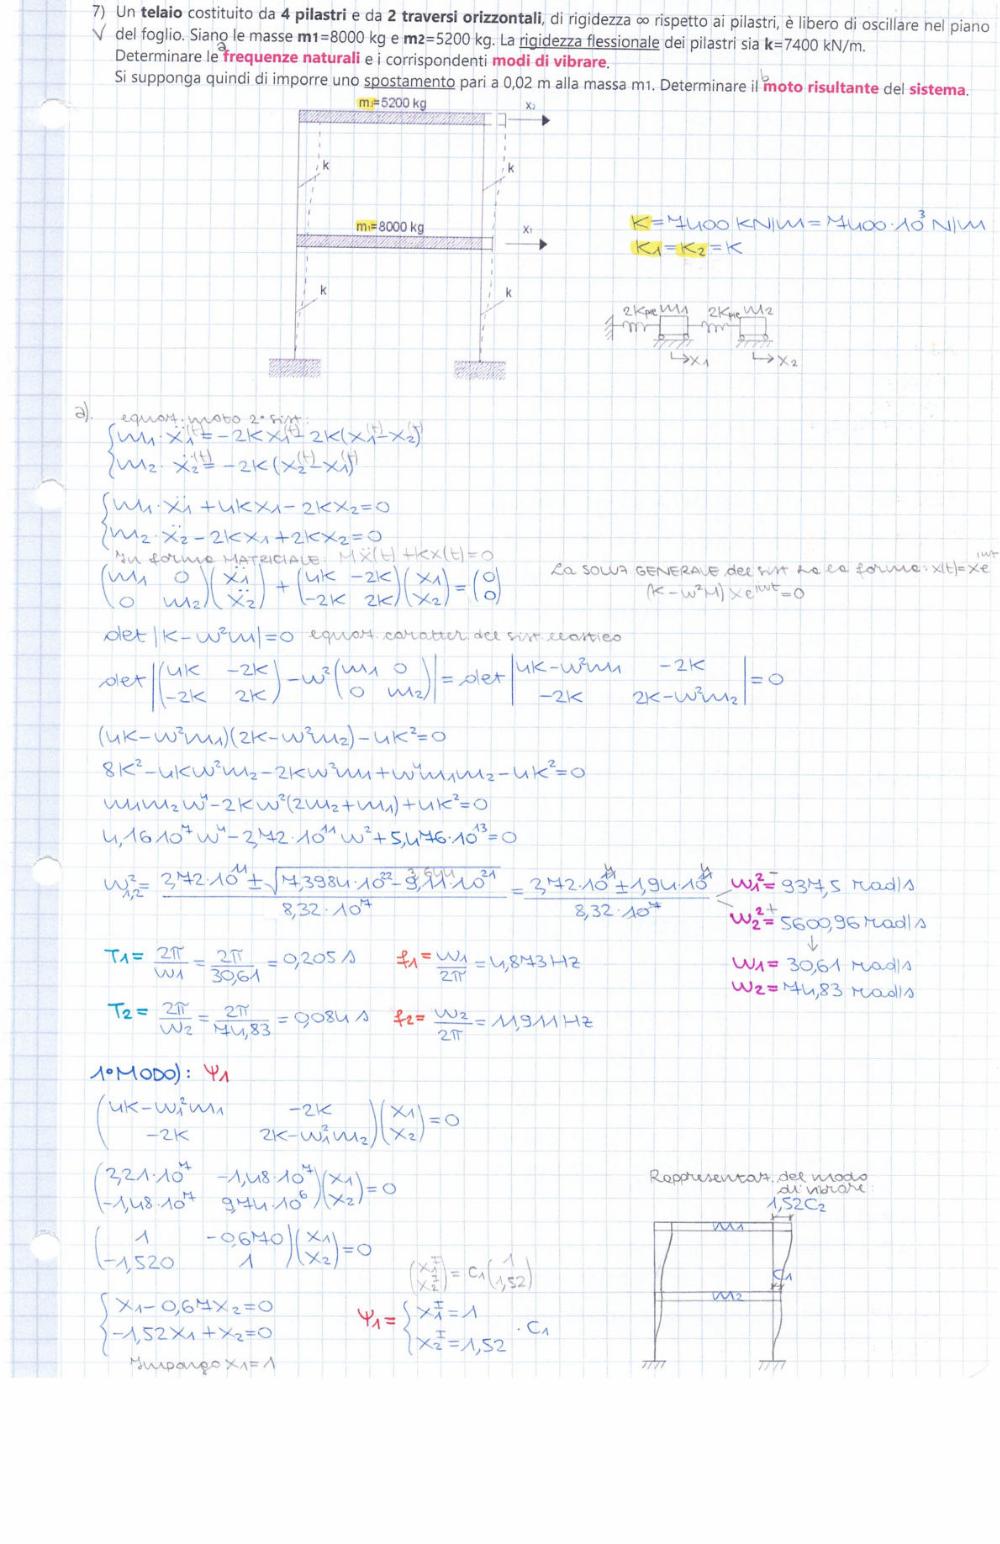 7) Un telaio costituito da 4 pilastri e da 2 traversi orizzontali, di rigidezza ∞ rispetto ai pilastri, è libero di oscillare nel piano
√ del foglio. Siano le masse m1=8000 kg e m2=5200 kg. La rigidezza flessionale dei pilastri sia k=7400 kN/m.
a
Determinare le frequenze naturali e i corrispondenti modi di vibrare.
b
Si supponga quindi di imporre uno spostamento pari a 0,02 m alla massa m1. Determinare il moto risultante del sistema.
m2=5200 kg
x2
k
k
m1=8000 kg
x1
k
k
K=7400 KN/m=7400·10³ N/m
K1=K2=K
m1 m2
→x1 →x2
a).
equaz. moto 2° sist:
m1·ẍ1(t)=-2Kx1(t)-2K(x1(t)-x2(t))
m2·ẍ2(t)=-2K(x2(t)-x1(t))
m1·ẍ1+4Kx1-2Kx2=0
m2·ẍ2-2Kx1+2Kx2=0
In forma MATRICIALE: Mẍ(t)+Kx(t)=0
(m1 0 / 0 m2)(ẍ1 / ẍ2)+(4K -2K / -2K 2K)(x1 / x2)=(0 / 0)
La SOLUZ GENERALE del sist ha la forma: x(t)=xe^iωt
(K-ω²M)Xe^iωt=0
det|K-ω²m|=0 equaz. caratter del sist elastico
det|(4K -2K / -2K 2K)-ω²(m1 0 / 0 m2)|=det|4K-ω²m1 -2K / -2K 2K-ω²m2|=0
(4K-ω²m1)(2K-ω²m2)-4K²=0
8K²-4Kω²m2-2Kω²m1+ω⁴m1m2-4K²=0
m1m2ω⁴-2Kω²(2m2+m1)+4K²=0
4,16·10⁷ω⁴-2,72·10¹¹ω²+5,476·10¹³=0
ω²1,2= (2,72·10¹¹±√7,3984·10²²-9,11·10²¹)/(8,32·10⁷) = (2,72·10¹¹±1,94·10¹¹)/(8,32·10⁷)
ω1²⁻=937,5 rad/s
ω2²⁺=5600,96 rad/s
↓
ω1=30,61 rad/s
ω2=74,83 rad/s
T1=2π/ω1=2π/30,61=0,205 s f1=ω1/2π=4,873 Hz
T2=2π/ω2=2π/74,83=0,084 s f2=ω2/2π=11,911 Hz
1°MODO): Ψ1
(4K-ω1²m1 -2K / -2K 2K-ω1²m2)(x1 / x2)=0
(2,21·10⁷ -1,48·10⁷ / -1,48·10⁷ 9,74·10⁶)(x1 / x2)=0
(1 -0,670 / -1,520 1)(x1 / x2)=0
x1-0,67x2=0
-1,52x1+x2=0
Impongo x1=1
(x1ᴵ / x2ᴵ)=C1(1 / 1,52)
Ψ1= x1ᴵ=1 / x2ᴵ=1,52 ·C1
Rappresentaz. del modo
di vibrare:
1,52C2
m1
C1
m2